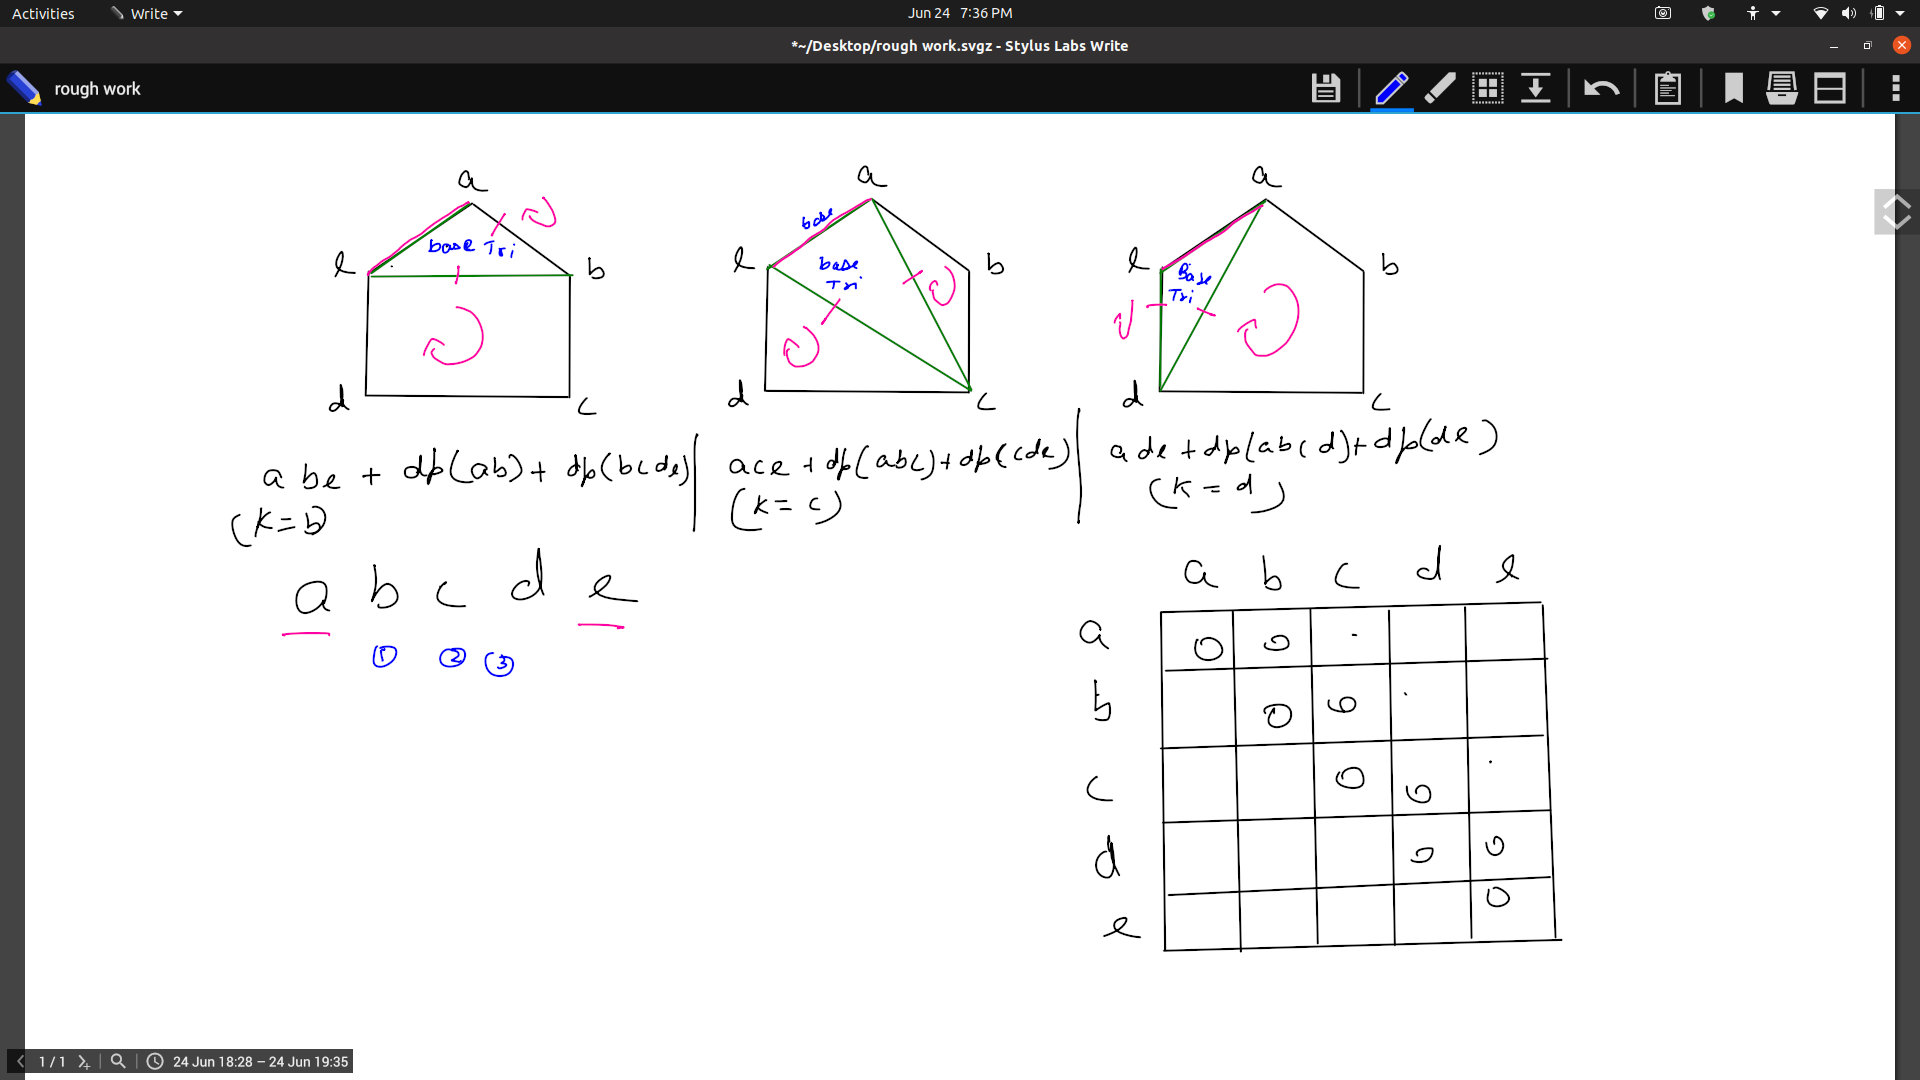 Activities Write Jun 24 7:36 PM
*~/Desktop/rough work.svgz - Stylus Labs Write
rough work
a a a
base Tri b e
base
base Tri b e
Base Tri b e
d c d c d c
abe + dp(ab) + dp(bcde) | ace + dp(abc) + dp(cde) | ade + dp(abcd) + dp(de)
(K = b) (K = c) (K = d)
a b c d e
① ② ③
a b c d e
a 0 0 .
b 0 0 .
c 0 0 .
d 0 0
e 0
1 / 1 24 Jun 18:28 – 24 Jun 19:35